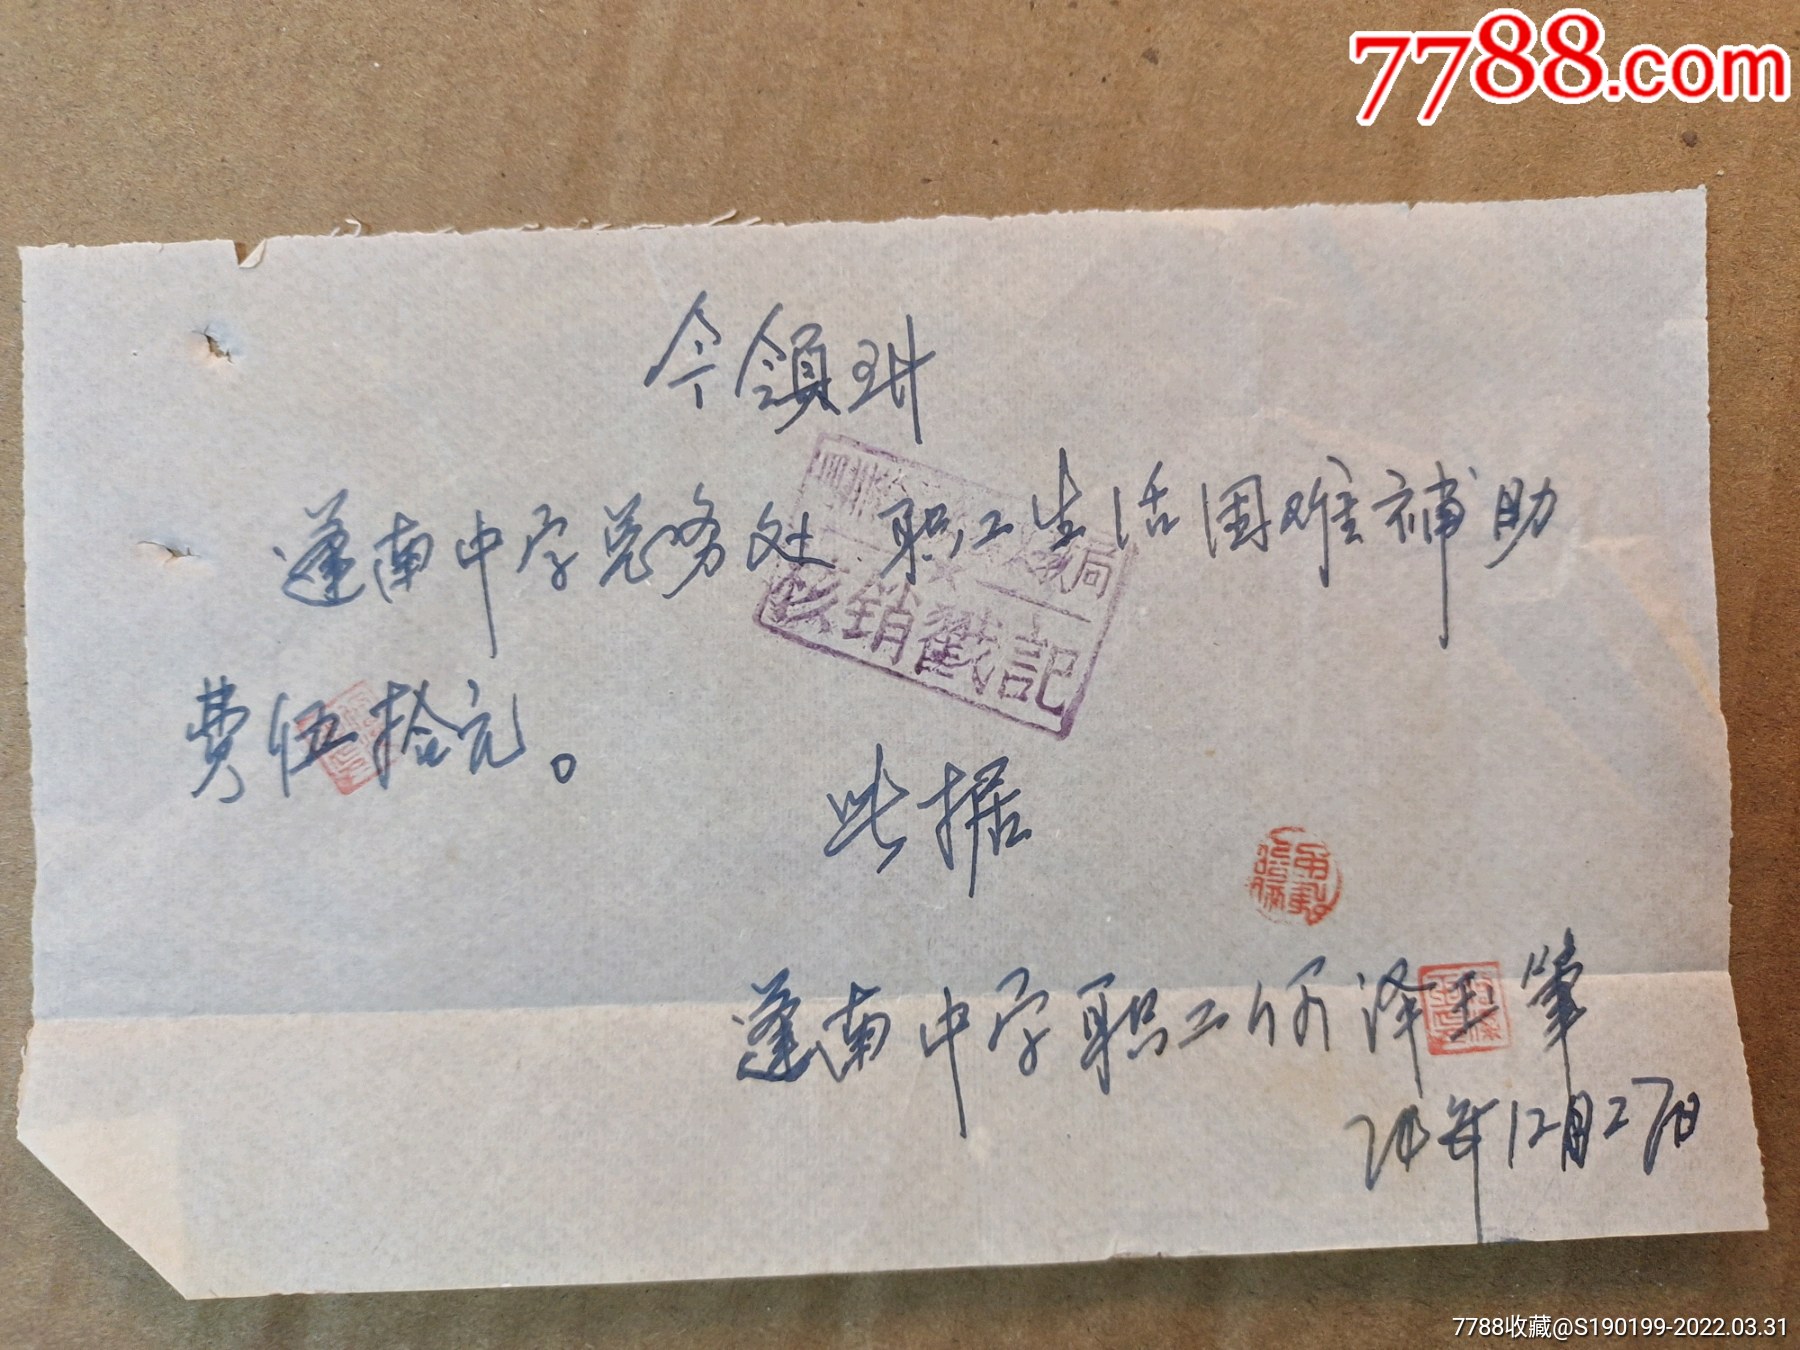 7788.com
今領到
蓬南中学总务处 职工生活困难補助
费伍拾元。
核銷戳記
此据
蓬南中学职工何泽玉筆
年12月27日
7788收藏@S190199-2022.03.31